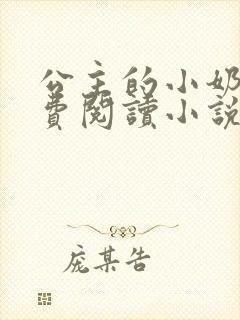 公主的小奶
費閱讀小說
庞某告